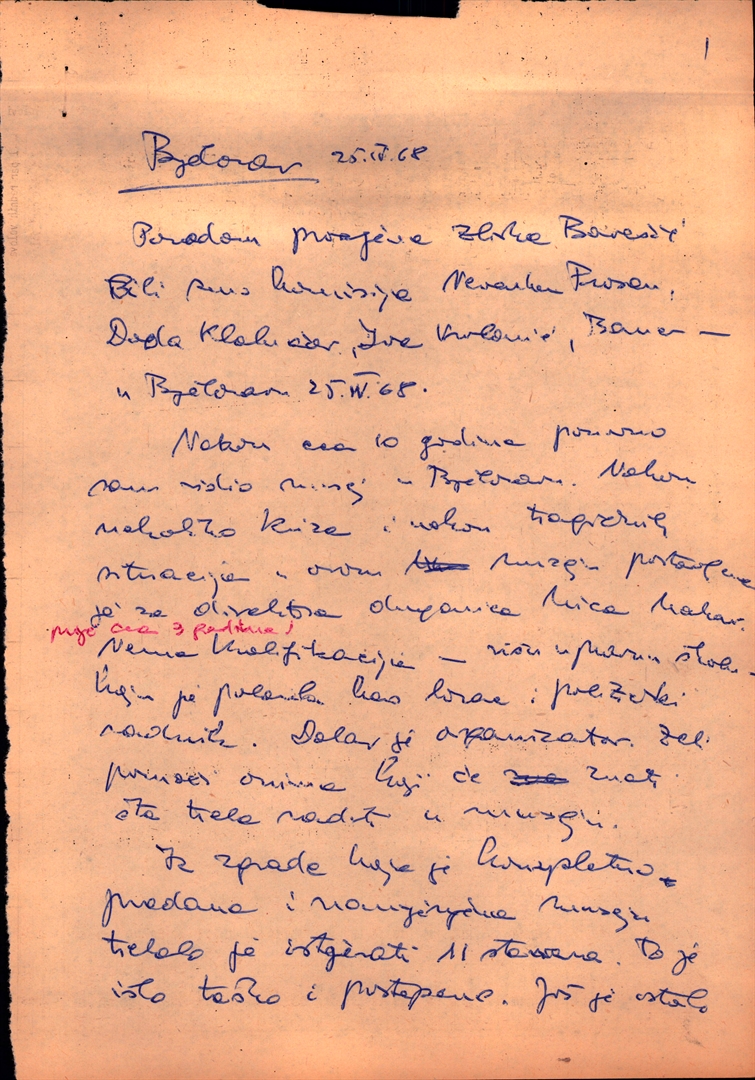 1
Bjelovar 25.IV.68
Povodom procjene zbirke Barešić
Bili smo komisija Nevenka Prosen,
Dogda Klobučar, Iva , Bauer —
u Bjelovaru 25.IV.68.
Nakon cca 10 godina ponovno
sam vidio muzej u Bjelovaru. Nakon
nekoliko kriza i nakon tragičnih
situacija u ovom muzeju postavljena
je za direktora drugarica Mica Makar.
prije cca 3 godine!
Nema kvalifikacija — višu upravnu školu
koju je polazila kao borac i politički
radnik. Dobar je organizator. Želi
pomoći onima koji će znati
šta treba raditi u muzeju.
Iz zgrade koja je kompletno
predana i namijenjena muzeju
trebalo je istjerati 11 stanara. To je
išlo teško i postepeno. Još je ostalo